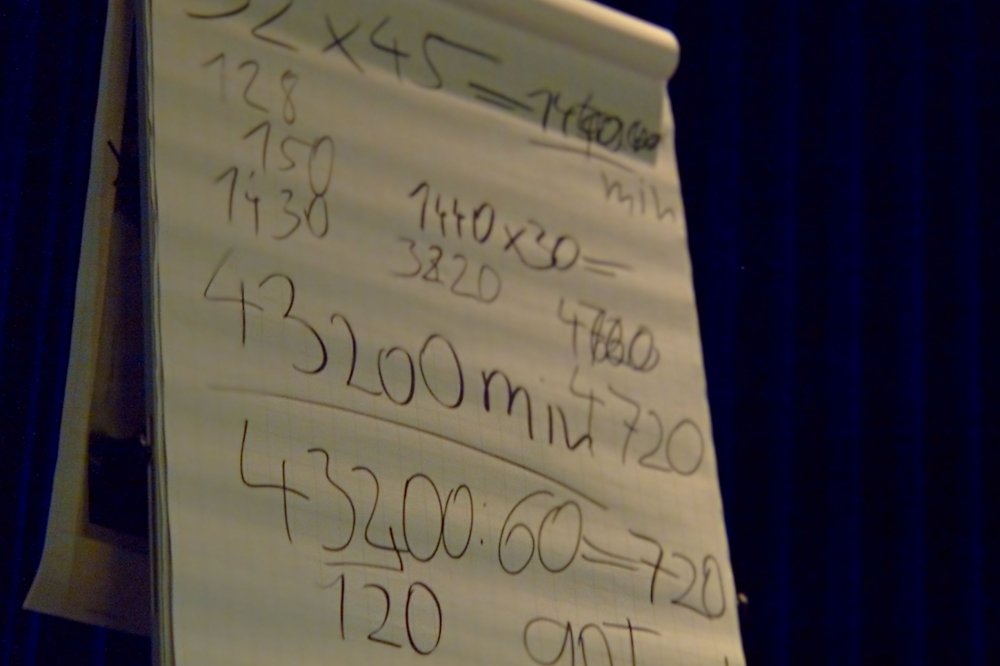 32 x 45 = 1440
min
128
150
1430
1440 x 30 =
3220
43200 min
4720
43200 : 60 = 720
120